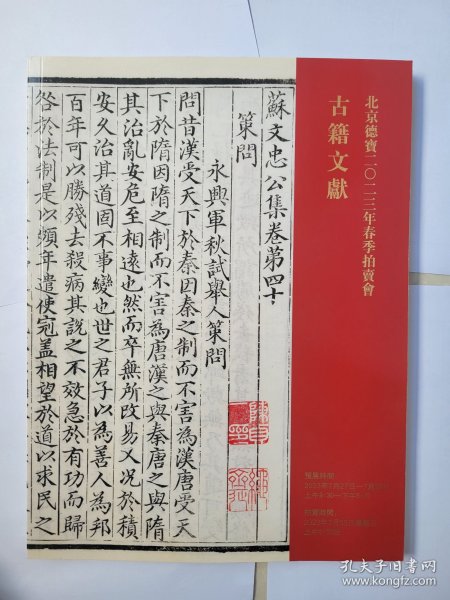 北京德寶二〇二三年春季拍賣會
古籍文獻
蘇文忠公集卷第四十
策問
永興軍秋試舉人策問
問昔漢受天下於秦因秦之制而不害為漢唐受天
下於隋因隋之制而不害為唐漢之與秦唐之與隋
其治亂安危至相遠也然而卒無所改易又況於積
安久治其道固不事變也世之君子以為善人為邦
百年可以勝殘去殺病其說之不效急於有功而歸
咎於法制是以頻年遣使冠盖相望於道以求民之
預展時間
拍賣時間
孔夫子旧书网
www.kongfz.com